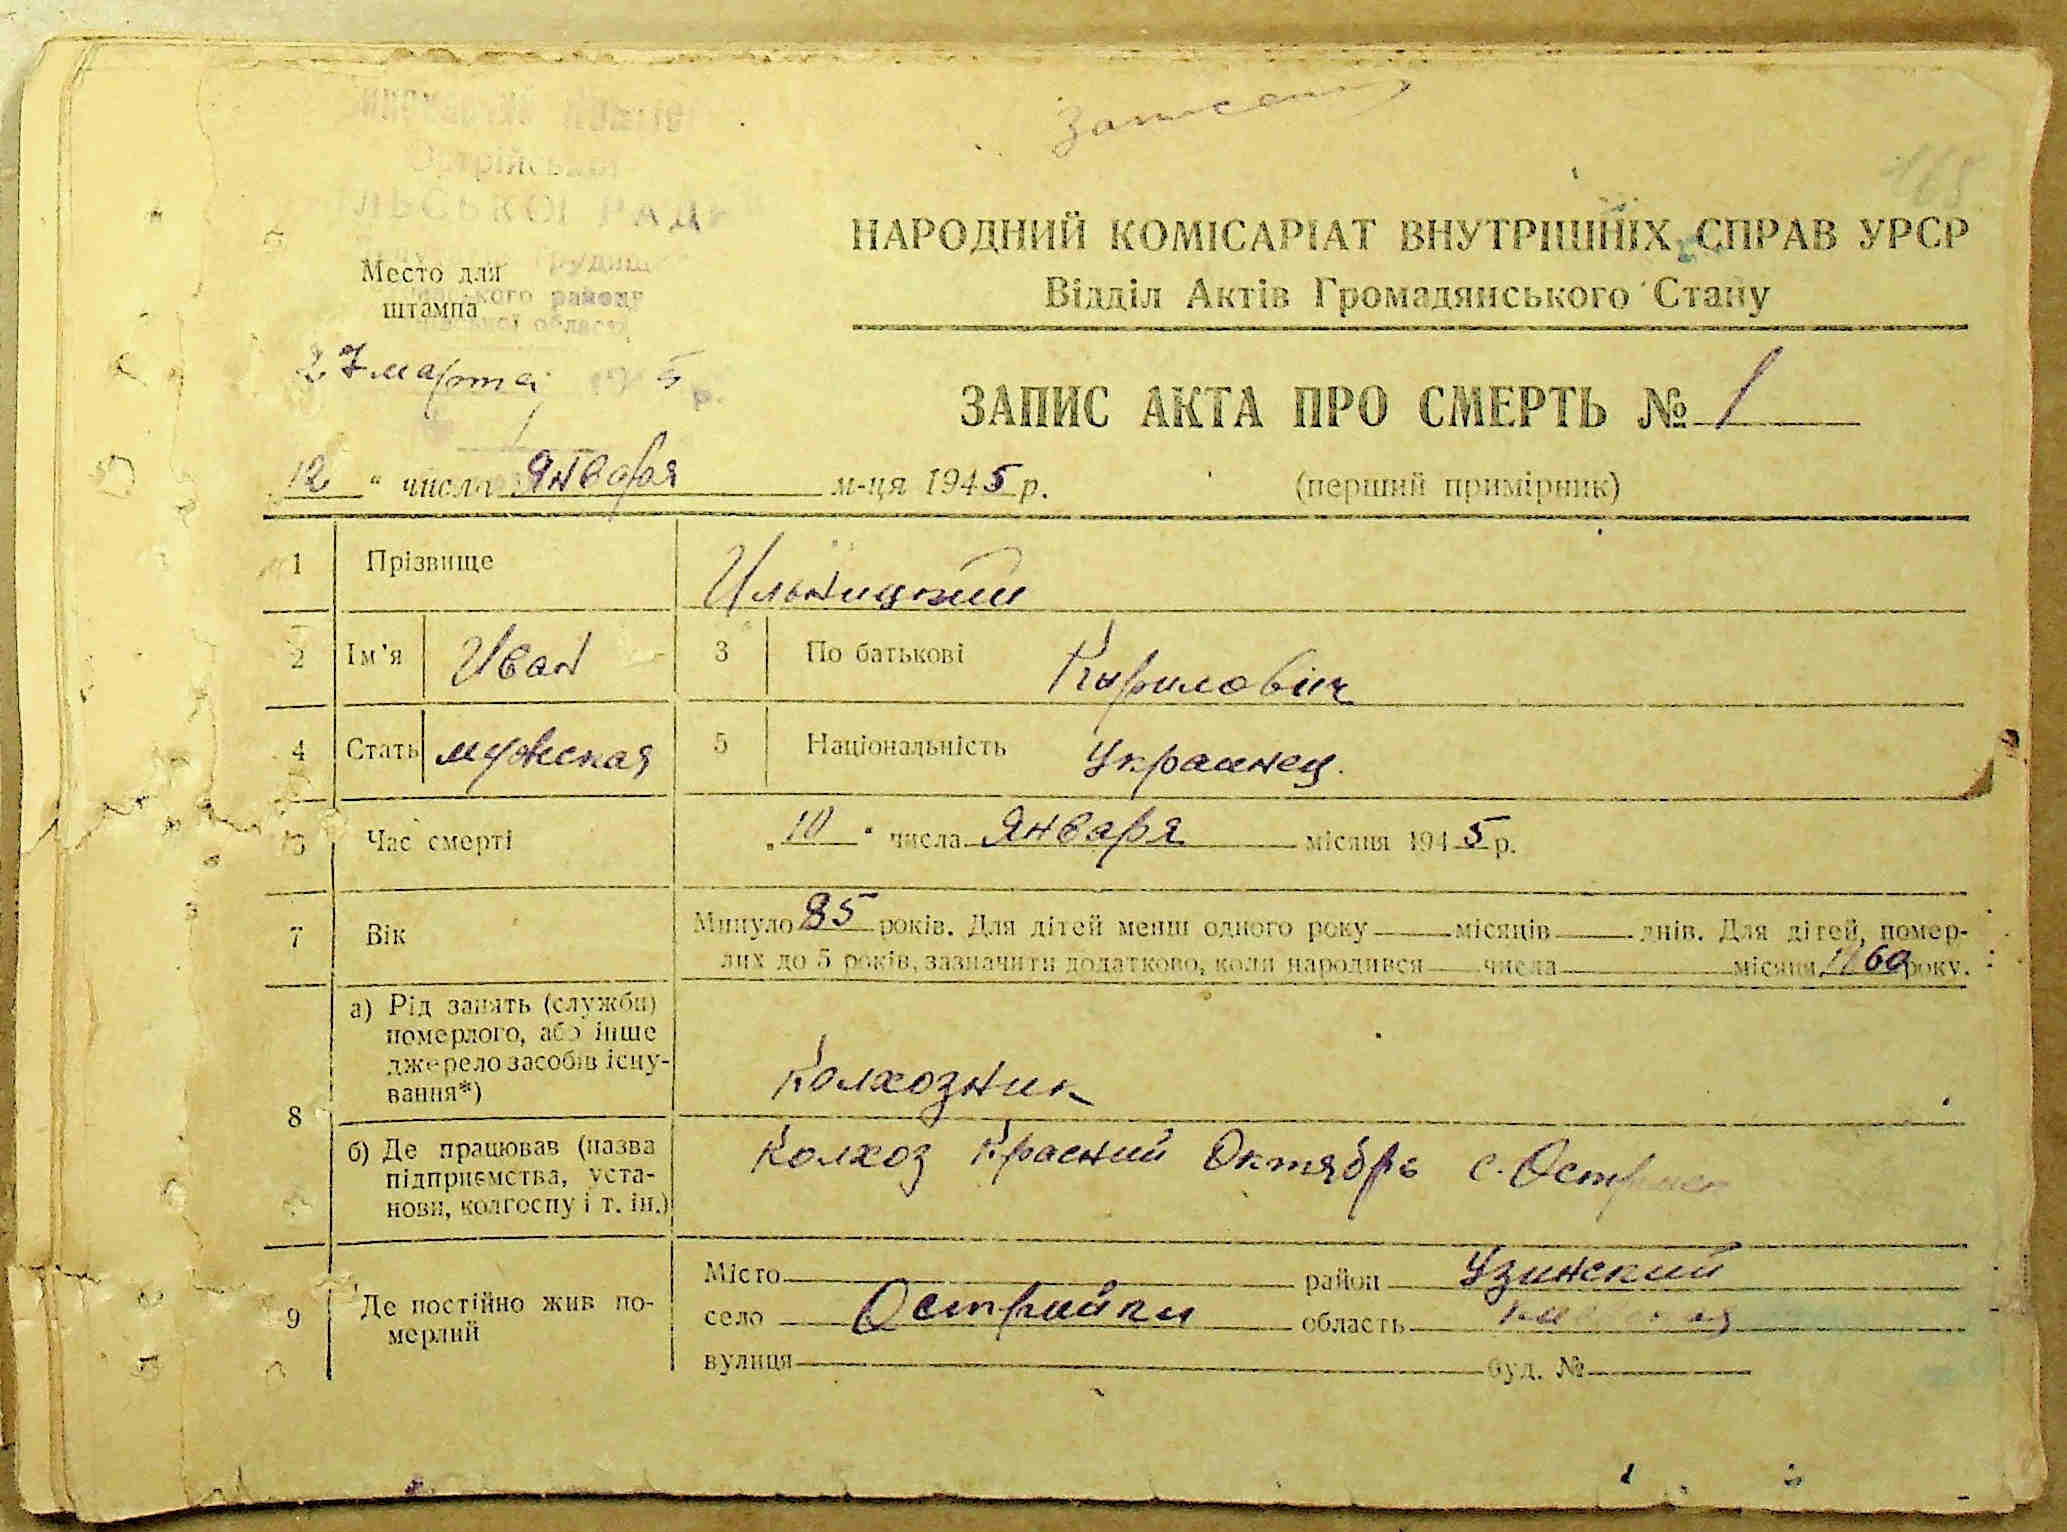 165
НАРОДНИЙ КОМІСАРІАТ ВНУТРІШНІХ СПРАВ УРСР
Відділ Актів Громадянського Стану
ЛЬСЬКОЇ РАДИ
Место для
штампа
кого району
області
27 марта 5 р.
ЗАПИС АКТА ПРО СМЕРТЬ № 1
12 " числа Января м-ця 1945 р. (перший примірник)
1 Прізвище Ильницкий
2 Ім'я Иван 3 По батькові Кирилович
4 Стать мужская 5 Національність Украинец.
6 Час смерті „ 10 " числа Января місяця 1945 р.
7 Вік Минуло 85 років. Для дітей менш одного року місяців днів. Для дітей, помер-
лих до 5 років, зазначити додатково, коли народився числа місяця 1860 року.
8 а) Рід занять (служби)
померлого, або інше
джерело засобів існу-
вання*) Колхозник
б) Де працював (назва
підприємства, уста-
нови, колгоспу і т. ін.) Колхоз Красний Октябрь с.
9 Де постійно жив по-
мерлий
Місто район Узинский
село Острийки область Киевская
вулиця буд. №